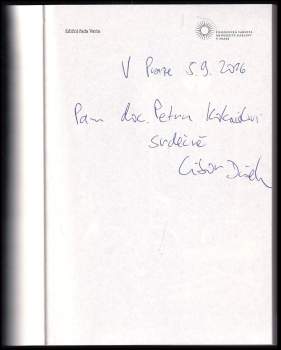 Ediční řada Varia
FILOZOFICKÁ FAKULTA
UNIVERZITY KARLOVY
V PRAZE
V Praze 5.9.2016
Panu doc. Petru
srdečně
Libor